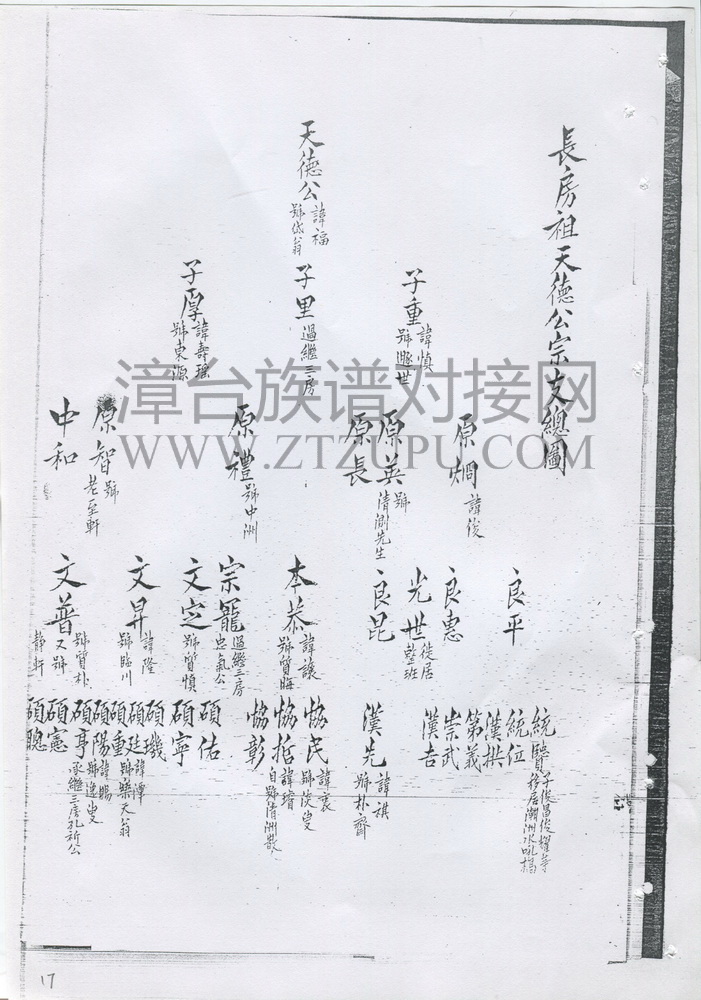 長房祖天德公宗支總圖
天德公
諱福
號岱翁
子重
諱慎
號豚世
子里 過繼三房
子厚
諱壽瑶
號東源
原烱 諱俊
原英 號
清渕先生
原長
原禮 號中洲
原智 號
老至軒
中和
良平
良惠
光世
徙居
良昆
本恭
諱讓
號質晦
宗籠
過繼三房
忠氣公
文定
號質慎
文昇
諱隆
號臨川
文普
號質朴
又號
静軒
統賢
子俊昌俊耀等
移居潮洲
統位
漢拱
第義
崇武
漢吉
漢先
諱祺
號朴齋
恊民
諱衷
恊哲
諱睿
自號清洲散
恊彰
碩佑
碩寧
碩璣
碩廷
諱潭
號樂天翁
碩重
碩陽
諱賜
號逸叟
碩亨
承繼三房孔祈公
碩憲
碩聰
漳台族谱对接网
WWW.ZTZUPU.COM
17